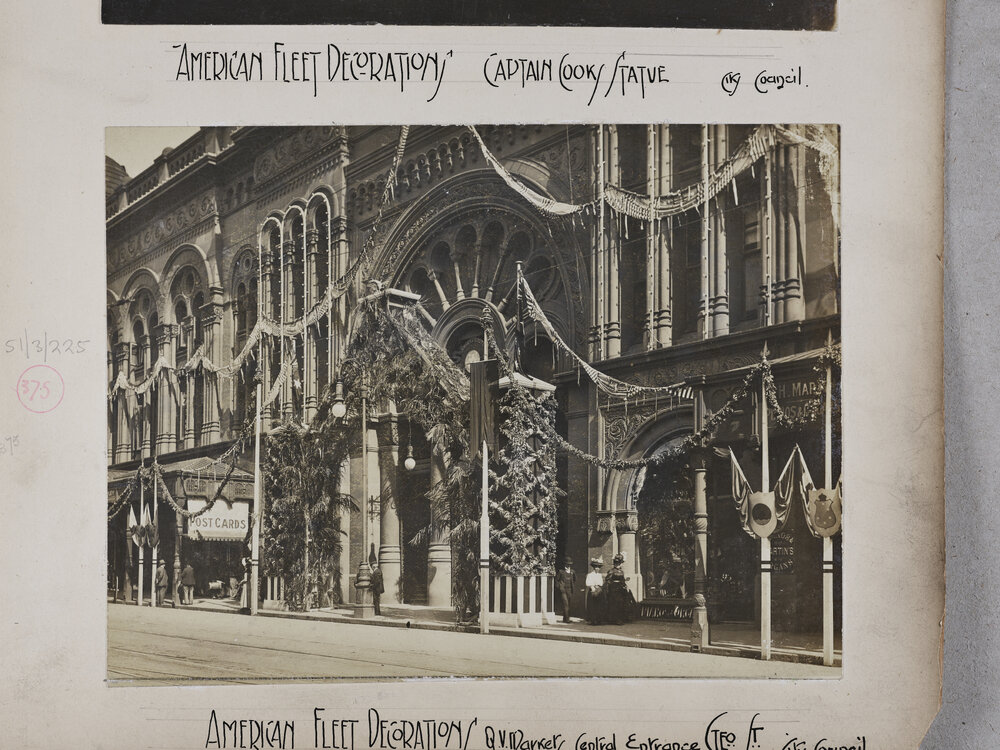 "AMERICAN FLEET DECORATIONS" CAPTAIN COOKS STATUE City Council.
51/3/225
375
POST CARDS
H. MAR
AMERICAN FLEET DECORATIONS Q.V. Markets Central Entrance GEO ST. City Council